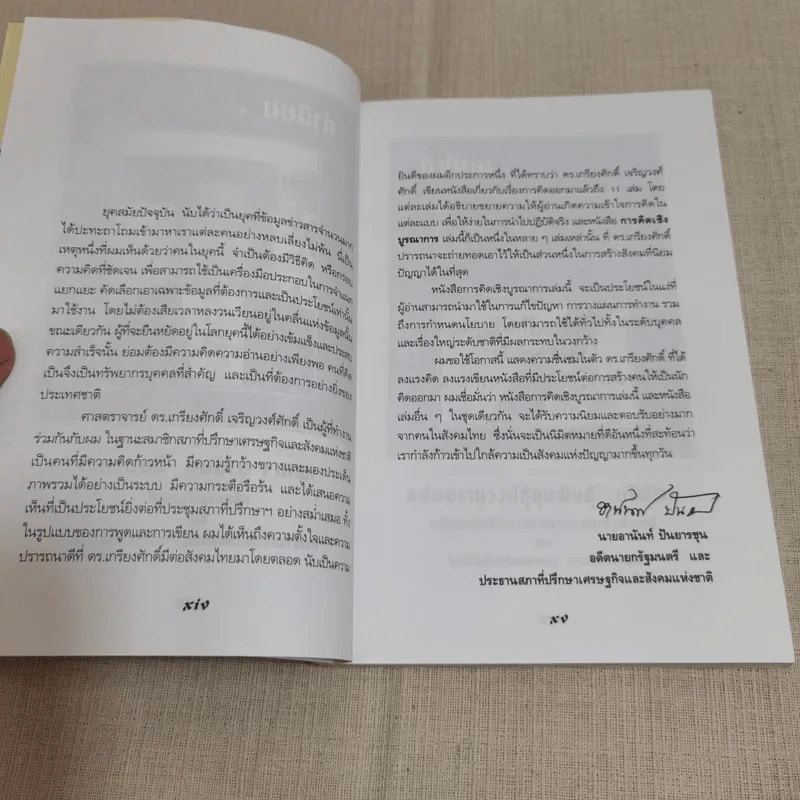 ยุคสมัยปัจจุบัน นับได้ว่าเป็นยุคที่ข้อมูลข่าวสารจำนวนมาก
ได้ปะทะถาโถมเข้ามาหาเราแต่ละคนอย่างหลบเลี่ยงไม่พ้น นี่เป็น
เหตุหนึ่งที่ผมเห็นด้วยว่าคนในยุคนี้ จำเป็นต้องมีวิธีคิด หรือกรอบ
ความคิดที่ชัดเจน เพื่อสามารถใช้เป็นเครื่องมือประกอบในการจำแนก
แยกแยะ คัดเลือกเอาเฉพาะข้อมูลที่ต้องการและเป็นประโยชน์เท่านั้น
มาใช้งาน โดยไม่ต้องเสียเวลาหลงวนเวียนอยู่ในคลื่นแห่งข้อมูลนั้น
ขณะเดียวกัน ผู้ที่จะยืนหยัดอยู่ในโลกยุคนี้ได้อย่างเข้มแข็งและประสบ
ความสำเร็จนั้น ย่อมต้องมีความคิดความอ่านอย่างเพียงพอ คนที่คิด
เป็นจึงเป็นทรัพยากรบุคคลที่สำคัญ และเป็นที่ต้องการอย่างยิ่งของ
ประเทศชาติ
ศาสตราจารย์ ดร.เกรียงศักดิ์ เจริญวงศ์ศักดิ์ เป็นผู้ที่ทำงาน
ร่วมกันกับผม ในฐานะสมาชิกสภาที่ปรึกษาเศรษฐกิจและสังคมแห่งชาติ
เป็นคนที่มีความคิดก้าวหน้า มีความรู้กว้างขวางและมองประเด็น
ภาพรวมได้อย่างเป็นระบบ มีความกระตือรือร้น และได้เสนอความ
เห็นที่เป็นประโยชน์ยิ่งต่อที่ประชุมสภาที่ปรึกษาฯ อย่างสม่ำเสมอ ทั้ง
ในรูปแบบของการพูดและการเขียน ผมได้เห็นถึงความตั้งใจและความ
ปรารถนาดีที่ ดร.เกรียงศักดิ์มีต่อสังคมไทยมาโดยตลอด นับเป็นความ
xiv
ยินดีของผมอีกประการหนึ่ง ที่ได้ทราบว่า ดร.เกรียงศักดิ์ เจริญวงศ์
ศักดิ์ เขียนหนังสือเกี่ยวกับเรื่องการคิดออกมาแล้วถึง 11 เล่ม โดย
แต่ละเล่มได้อธิบายขยายความให้ผู้อ่านเกิดความเข้าใจการคิดใน
แต่ละแบบ เพื่อให้ง่ายในการนำไปปฏิบัติจริง และหนังสือ การคิดเชิง
บูรณาการ เล่มนี้ก็เป็นหนึ่งในหลาย ๆ เล่มเหล่านั้น ที่ ดร.เกรียงศักดิ์
ปรารถนาจะถ่ายทอดเอาไว้ให้เป็นส่วนหนึ่งในการสร้างสังคมที่นิยม
ปัญญาได้ในที่สุด
หนังสือการคิดเชิงบูรณาการเล่มนี้ จะเป็นประโยชน์ในแง่ที่
ผู้อ่านสามารถนำมาใช้ในการแก้ไขปัญหา การวางแผนการทำงาน รวม
ถึงการกำหนดนโยบาย โดยสามารถใช้ได้ทั่วไปทั้งในระดับบุคคล
และเรื่องใหญ่ระดับชาติที่มีผลกระทบในวงกว้าง
ผมขอใช้โอกาสนี้ แสดงความชื่นชมในตัว ดร.เกรียงศักดิ์ ที่ได้
ลงแรงคิด ลงแรงเขียนหนังสือที่มีประโยชน์ต่อการสร้างคนให้เป็นนัก
คิดออกมา ผมเชื่อมั่นว่า หนังสือการคิดเชิงบูรณาการเล่มนี้ และหนังสือ
เล่มอื่น ๆ ในชุดเดียวกัน จะได้รับความนิยมและตอบรับอย่างมาก
จากคนในสังคมไทย ซึ่งนั่นจะเป็นนิมิตหมายที่ดีอันหนึ่งที่สะท้อนว่า
เรากำลังก้าวเข้าไปใกล้ความเป็นสังคมแห่งปัญญามากขึ้นทุกวัน
นายอานันท์ ปันยารชุน
อดีตนายกรัฐมนตรี และ
ประธานสภาที่ปรึกษาเศรษฐกิจและสังคมแห่งชาติ
xv